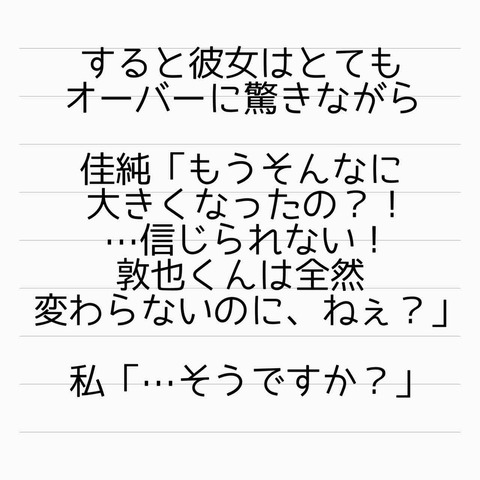 すると彼女はとても
オーバーに驚きながら
佳純「もうそんなに
大きくなったの？！
…信じられない！
敦也くんは全然
変わらないのに、ねぇ？」
私「…そうですか？」